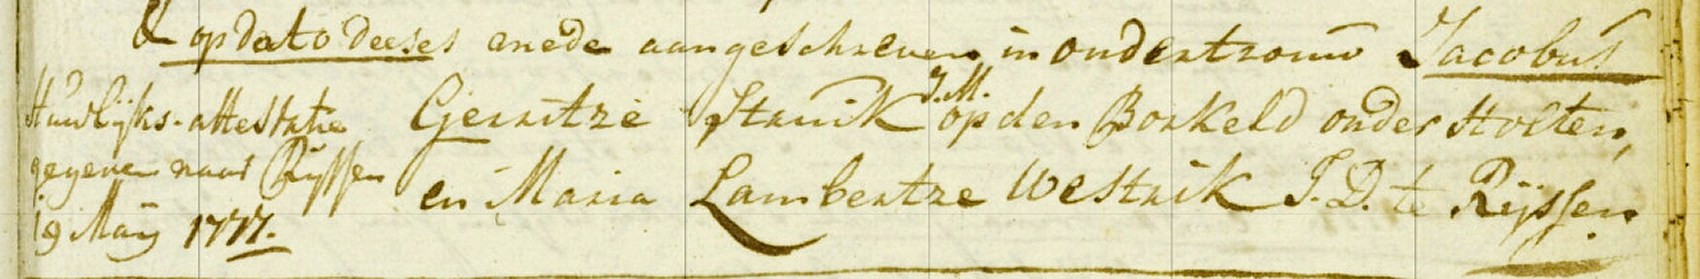 & op dato deeses mede aangeschreven in ondertrouw Jacobus
Gerritze Struik J.M. op den Borkeld onder Holten,
en Maria Lambertze Westrik J.D. te Rijssen.
Huwlijks-attestatie
gegeven naar Rijssen
19 Maij 1777.